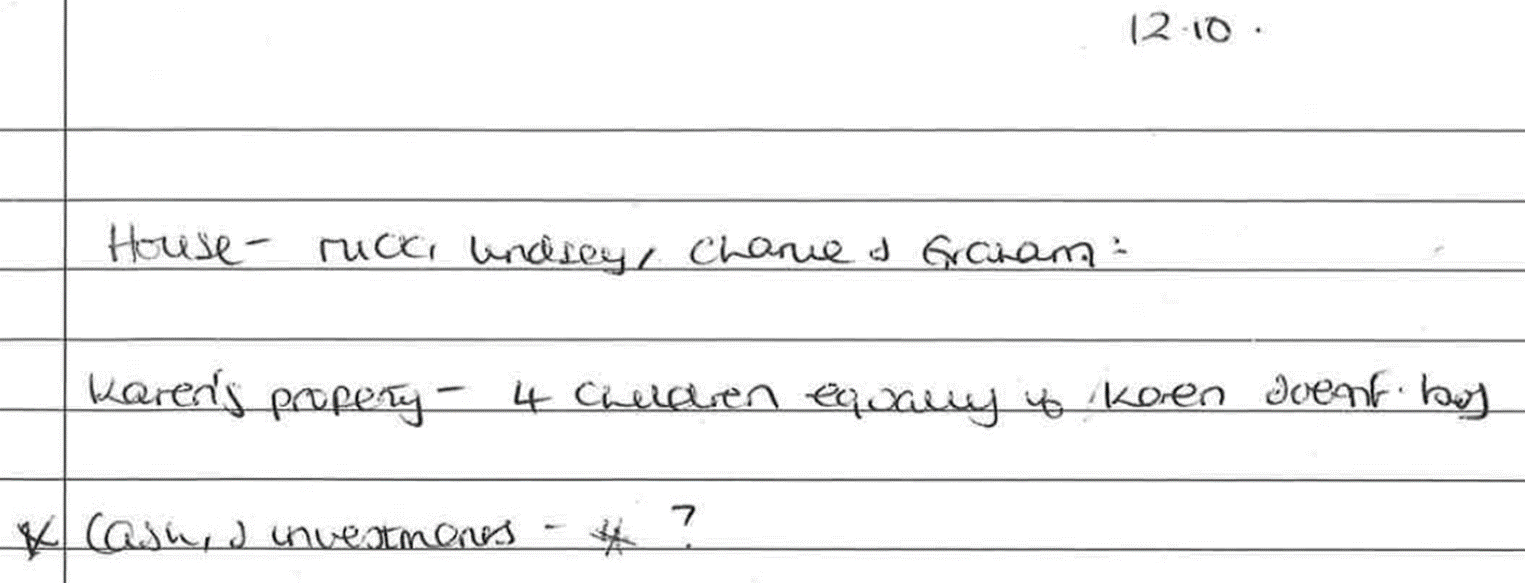 12.10.
House - ricci lindsey, Charlie & Graham:
Karen's property - 4 children equally if Karen doesn't buy
* Cash, & investments - * ?